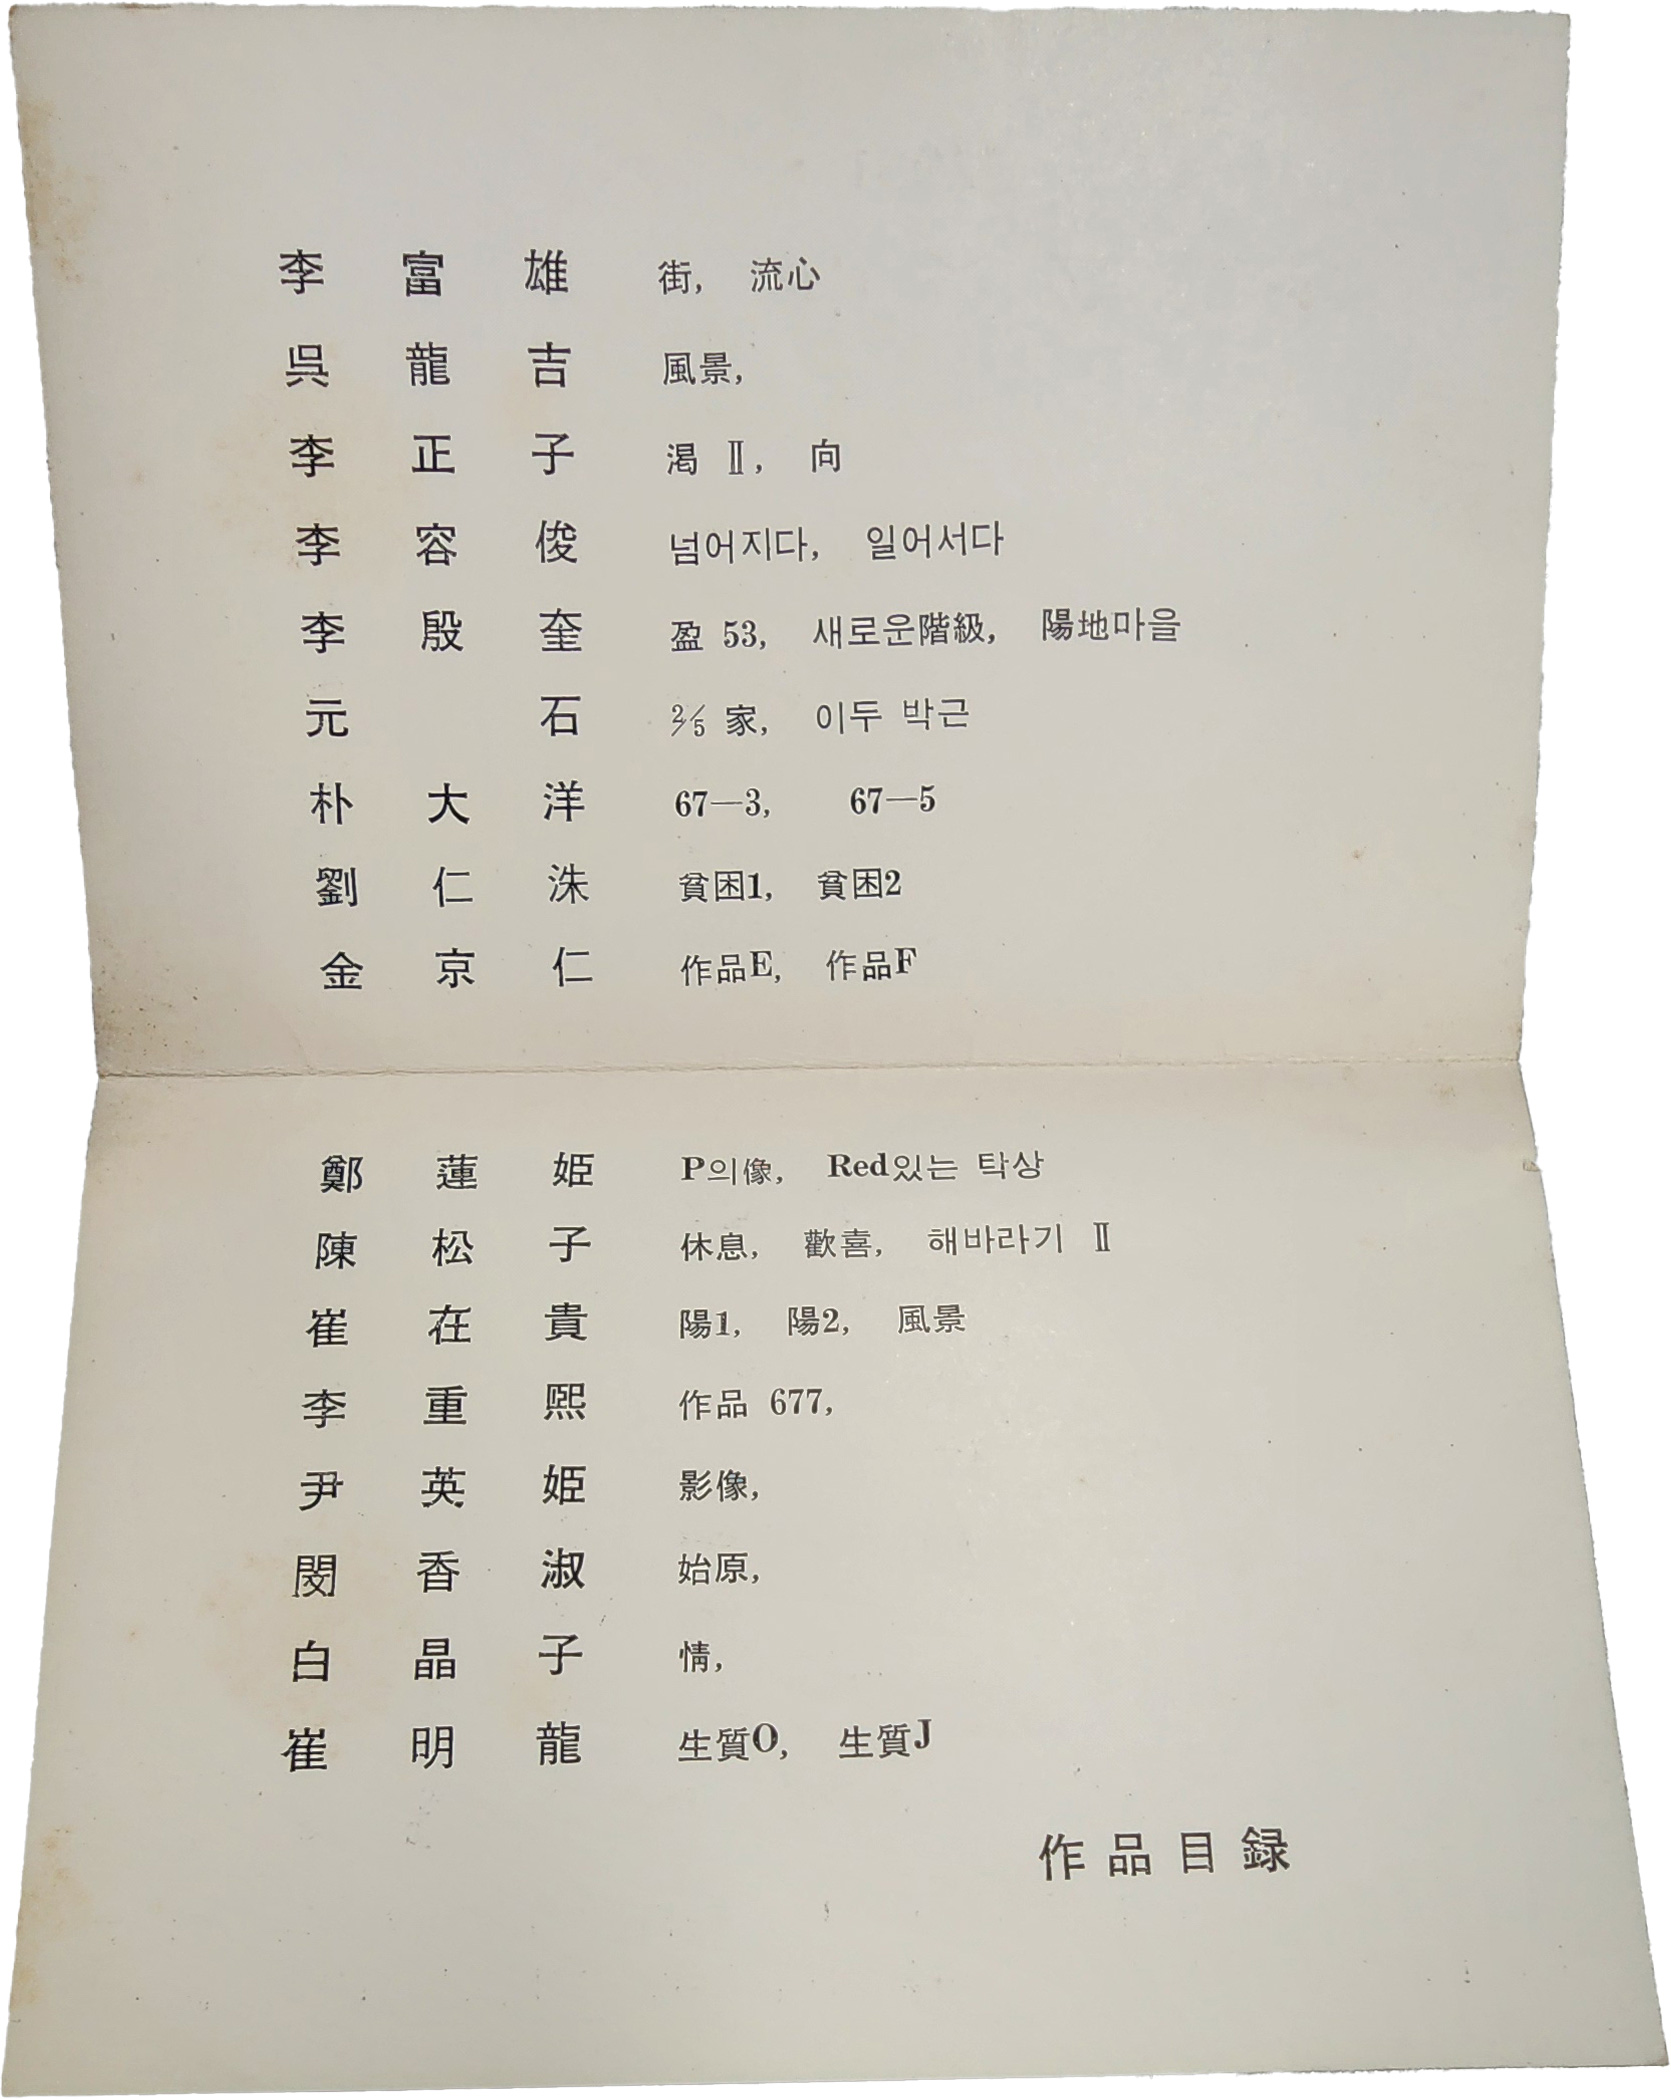 李富雄 街, 流心
呉龍吉 風景,
李正子 渇 Ⅱ, 向
李容俊 넘어지다, 일어서다
李殷奎 盈 53, 새로운階級, 陽地마을
元石 2/5 家, 이두 박근
朴大洋 67—3, 67—5
劉仁洙 貧困1, 貧困2
金京仁 作品E, 作品F
鄭蓮姫 P의像, Red있는 탁상
陳松子 休息, 歡喜, 해바라기 Ⅱ
崔在貴 陽1, 陽2, 風景
李重熙 作品 677,
尹英姫 影像,
閔香淑 始原,
白晶子 情,
崔明龍 生質O, 生質J
作品目録